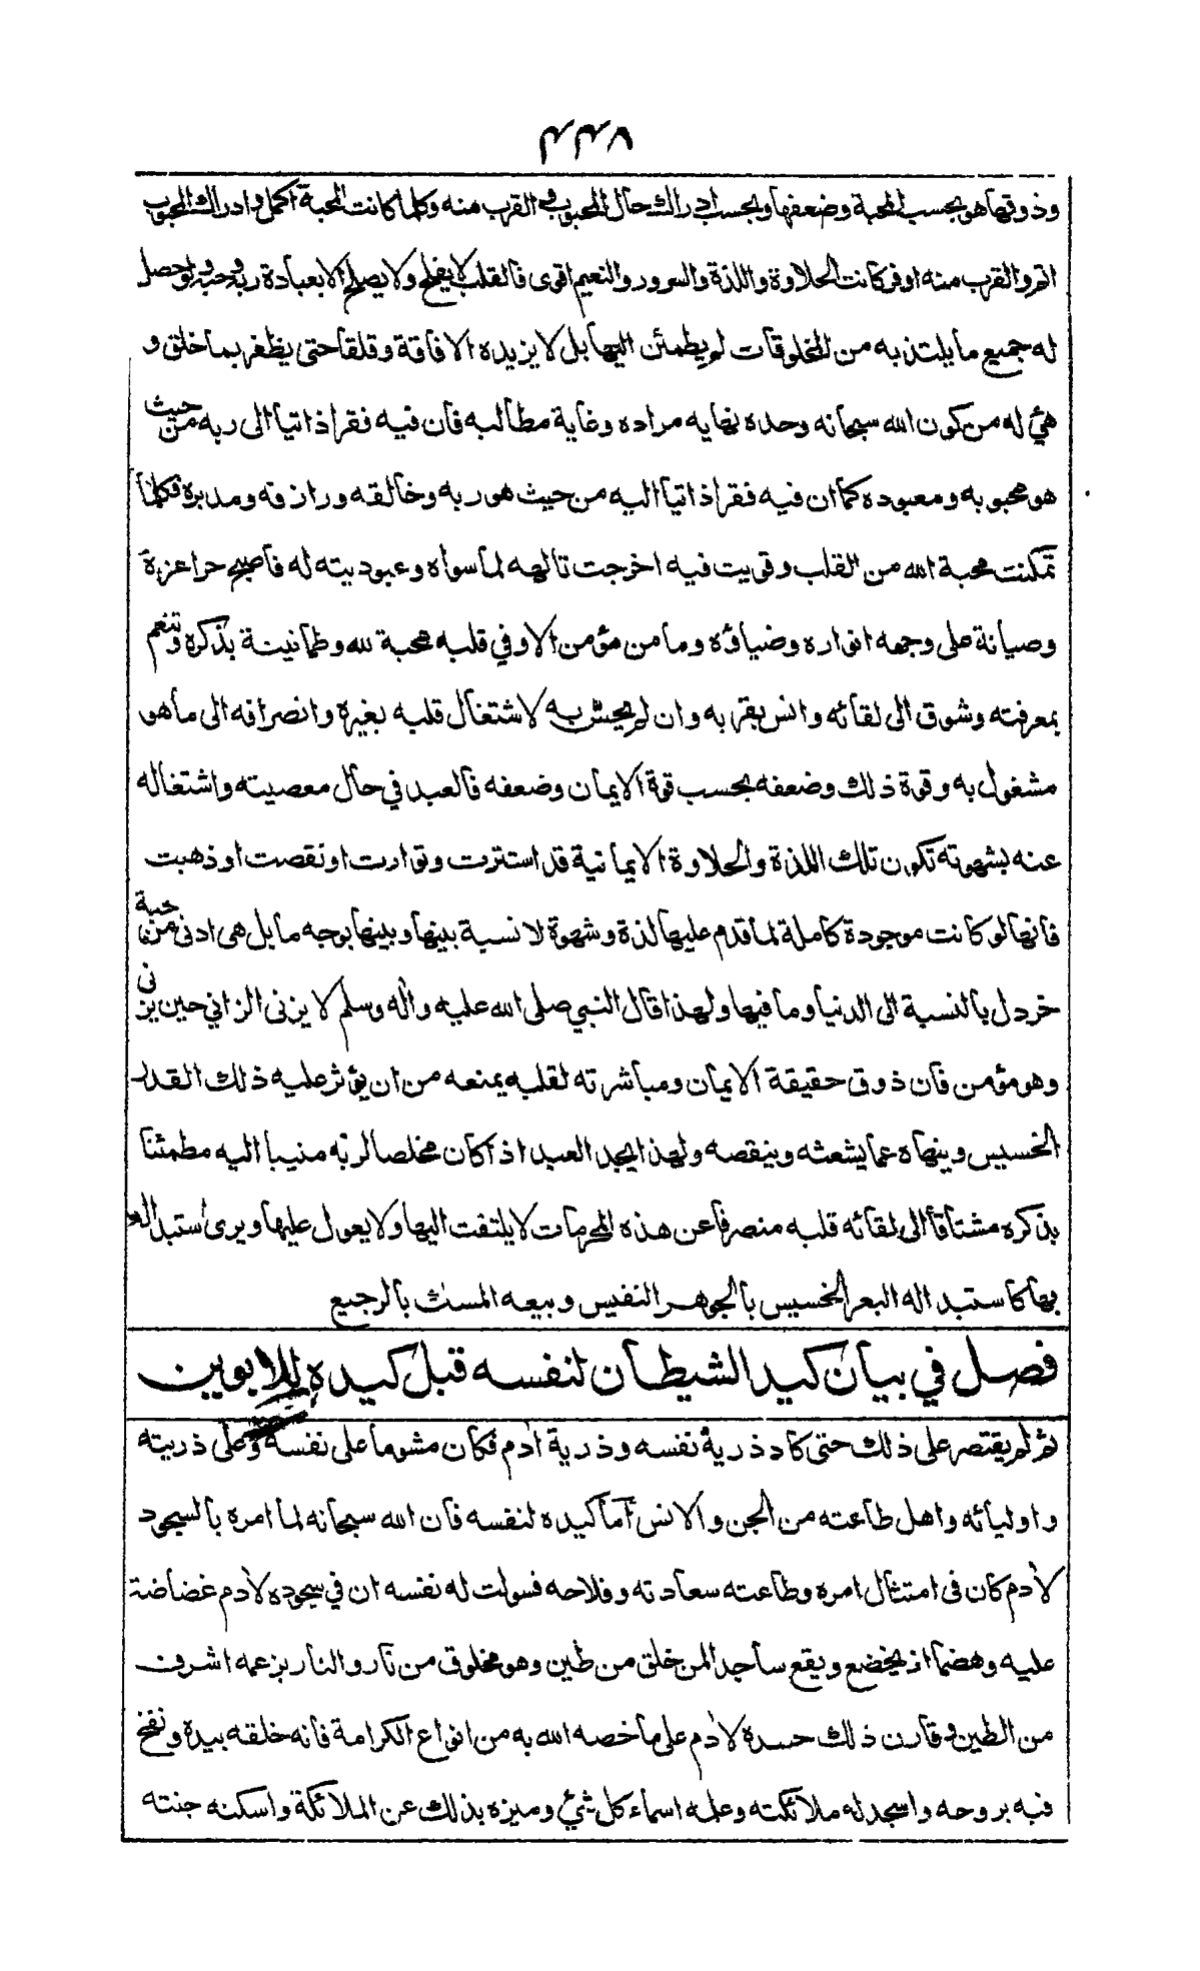 ٧٣٣
وذوقها هو بحسب المحبة وضعفها وبحسب ادراك حال المحبوب في القرب منه وكلما كانت المحبة اكمل وادراك المحبوب
اتم والقرب منه اوفر كانت الحلاوة واللذة والسرور والنعيم اقوى فالقلب لا يفلح ولا يصلح الا بعبادة ربه وحبه ولو حصل
له جميع ما يلتذ به من المخلوقات لم يطمئن اليها بل لا يزيده الا فاقة وقلقا حتى يظفر بما خلق و
هيئ له من كون الله سبحانه وحده نهايه مراده وغاية مطالبه فان فيه فقرا ذاتيا الى ربه من حيث
هو محبوبه ومعبوده كما ان فيه فقرا ذاتيا اليه من حيث هو ربه وخالقه ورازقه ومدبره فكلما
تمكنت محبة الله من القلب وقويت فيه اخرجت تالهه لما سواه وعبوديته له فاصبح حرا عزة
وصيانة على وجهه انواره وضياؤه وما من مؤمن الا وفي قلبه محبة لله وطمانينة بذكره وتنعم
بمعرفته وشوق الى لقائه وانس بقربه وان لم يحس به لاشتغال قلبه بغيره وانصرافه الى ما هو
مشغول به وقوة ذلك وضعفه بحسب قوة الايمان وضعفه فالعبد في حال معصيته واشتغاله
عنه بشهوته تكون تلك اللذة والحلاوة الايمانية قد استترت وتوارت او نقصت او ذهبت
فانها لو كانت موجودة كاملة لما قدم عليها لذة وشهوة لا نسبة بينها وبينها بوجه ما بل هى ادنى من حبة
خردل بالنسبة الى الدنيا وما فيها ولهذا قال النبي صلى الله عليه واله وسلم لا يزنى الزاني حين يزنى
وهو مؤمن فان ذوق حقيقة الايمان ومباشرته لقلبه يمنعه من ان يؤثر عليه ذلك القدر
الخسيس وينهاه عما يشعثه وينقصه ولهذا يجد العبد اذا كان مخلصا لربه منيبا اليه مطمئنا
بذكره مشتاقا الى لقائه قلبه منصرفا عن هذه المحرمات لا يلتفت اليها ولا يعول عليها ويرى استبداله
بها كاستبداله البعر الخسيس بالجوهر النفيس وبيعه المسك بالرجيع
فصل في بيان كيد الشيطان لنفسه قبل كيده للابوين
ثم لم يقتصر على ذلك حتى كاد ذرية نفسه وذرية ادم فكان مشوما على نفسه وعلى ذريته
واوليائه واهل طاعته من الجن والانس اما كيده لنفسه فان الله سبحانه لما امره بالسجود
لادم كان فى امتثال امره وطاعته سعادته وفلاحه فسولت له نفسه ان في سجوده لادم غضاضة
عليه وهضما اذ يخضع ويقع ساجدا لمن خلق من طين وهو مخلوق من نار والنار بزعمه اشرف
من الطين وقارن ذلك حسده لادم على ما خصه الله به من انواع الكرامة فانه خلقه بيده ونفخ
فيه بروحه واسجد له ملائكته وعلمه اسماء كل شئ وميزه بذلك عن الملائكة واسكنه جنته